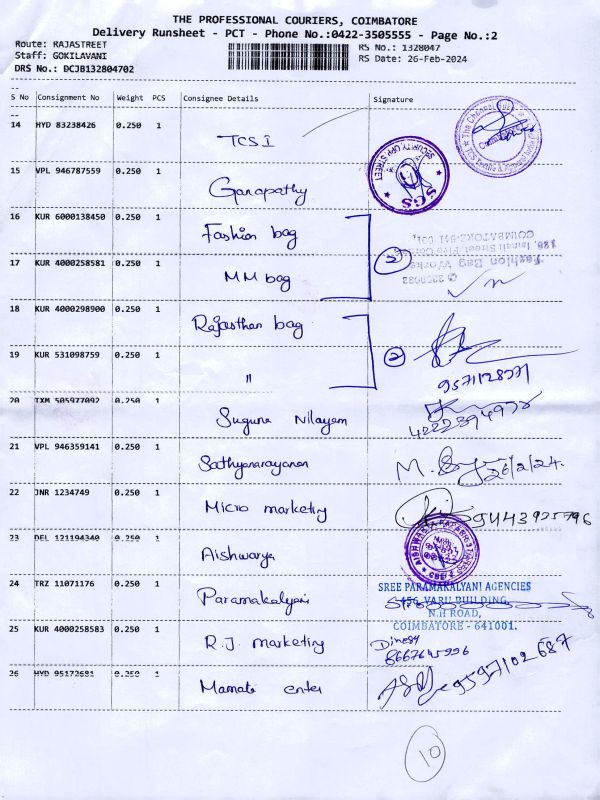 THE PROFESSIONAL COURIERS, COIMBATORE
Delivery Runsheet - PCT - Phone No.:0422-3505555 - Page No.:2
Route: RAJASTREET
Staff: GOKILAVANI
DRS No.: DCJB132804702
RS No.: 1328047
RS Date: 26-Feb-2024
S No Consignment No Weight PCS Consignee Details Signature
14 HYD 83238426 0.250 1 TCS I
15 VPL 946787559 0.250 1 Ganapathy
SECURITY OPP STREET
SGS
16 KUR 6000138450 0.250 1 Fashion bag
Fashion Bag Works
17 KUR 4000258581 0.250 1 MM bag
18 KUR 4000298900 0.250 1 Rajasthan bag
2
19 KUR 531098759 0.250 1 "
20 TXM 505977092 0.250 1 Suguna Nilayam
4222394978
21 VPL 946359141 0.250 1 Sathyanarayanan
26/2/24.
22 JNR 1234749 0.250 1 Micro marketing
9443925796
23 DEL 121194340 0.250 1 Aishwarya
24 TRZ 11071176 0.250 1 Paramakalyani
SREE PARAMAKALYANI AGENCIES
456, VARU BUILDING,
N.H ROAD,
COIMBATORE - 641001.
25 KUR 4000258583 0.250 1 R.J. marketing
Dinesh
8667645996
26 HYD 95172691 0.250 1 Mamata enter
9597102687
10